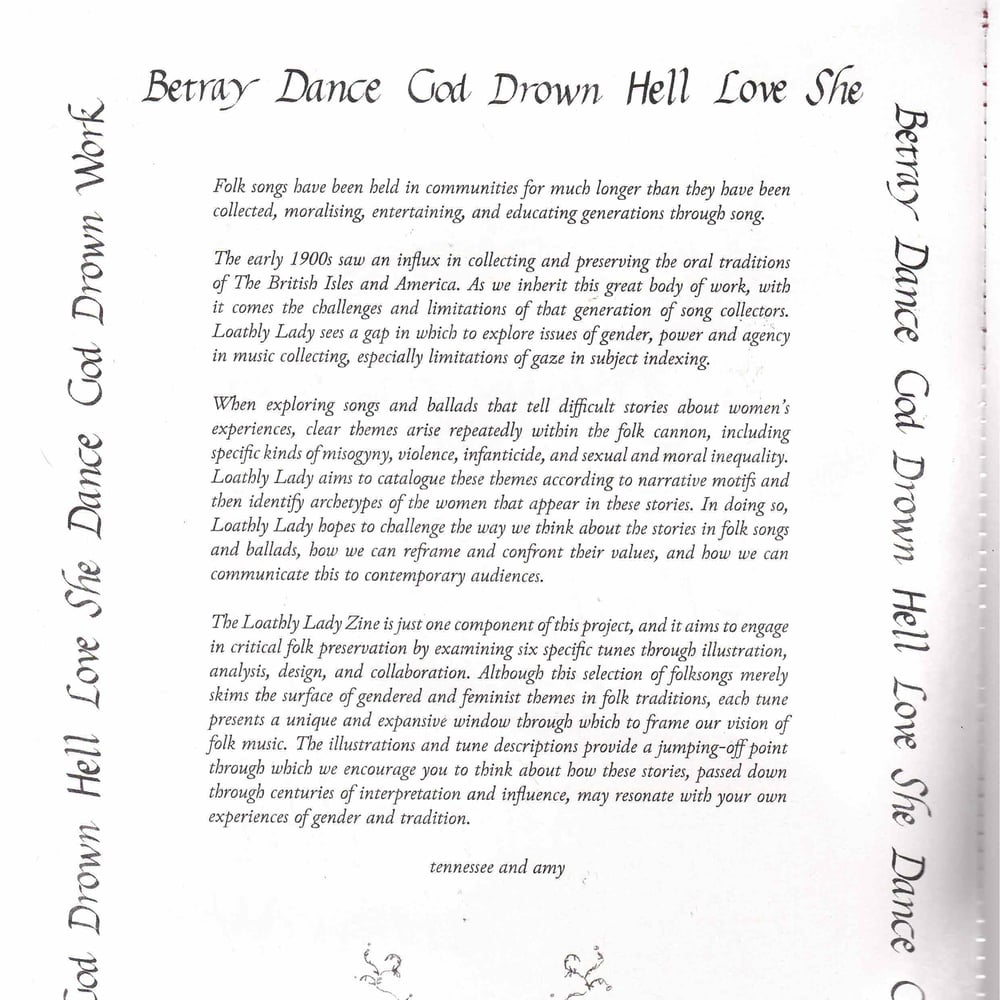 Betray Dance God Drown Hell Love She
Folk songs have been held in communities for much longer than they have been
collected, moralising, entertaining, and educating generations through song.
The early 1900s saw an influx in collecting and preserving the oral traditions
of The British Isles and America. As we inherit this great body of work, with
it comes the challenges and limitations of that generation of song collectors.
Loathly Lady sees a gap in which to explore issues of gender, power and agency
in music collecting, especially limitations of gaze in subject indexing.
When exploring songs and ballads that tell difficult stories about women's
experiences, clear themes arise repeatedly within the folk cannon, including
specific kinds of misogyny, violence, infanticide, and sexual and moral inequality.
Loathly Lady aims to catalogue these themes according to narrative motifs and
then identify archetypes of the women that appear in these stories. In doing so,
Loathly Lady hopes to challenge the way we think about the stories in folk songs
and ballads, how we can reframe and confront their values, and how we can
communicate this to contemporary audiences.
The Loathly Lady Zine is just one component of this project, and it aims to engage
in critical folk preservation by examining six specific tunes through illustration,
analysis, design, and collaboration. Although this selection of folksongs merely
skims the surface of gendered and feminist themes in folk traditions, each tune
presents a unique and expansive window through which to frame our vision of
folk music. The illustrations and tune descriptions provide a jumping-off point
through which we encourage you to think about how these stories, passed down
through centuries of interpretation and influence, may resonate with your own
experiences of gender and tradition.
tennessee and amy
God Drown Hell Love She Dance God Drown Work
Betray Dance God Drown Hell Love She Dance